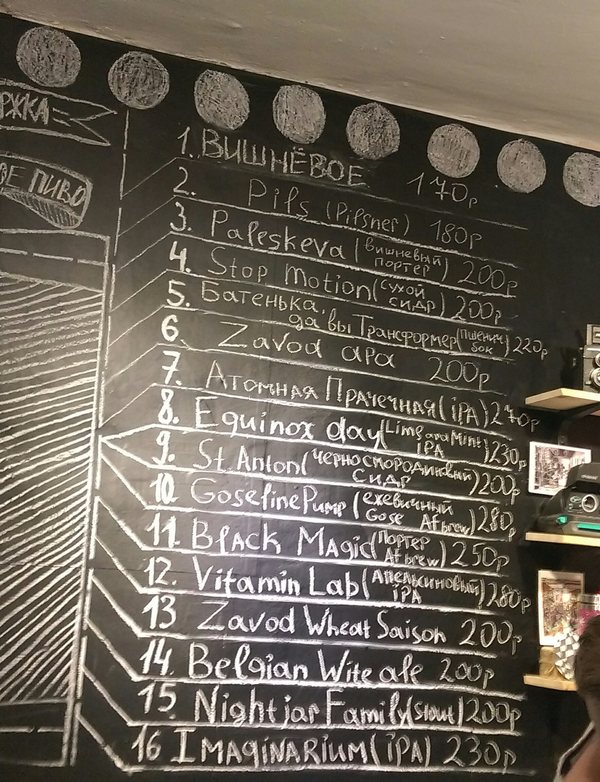 РЖКА
ПИВО
1. ВИШНЁВОЕ 170р
2. Pils (Pilsner) 180р
3. Paleskeva (вишневый портер) 200р
4. Stop Motion (сухой сидр) 200р
5. Батенька,
да вы Трансформер( 220р
6 Zavod apa 200р
7. Атомная Прачечная (iPA) 270р
8. Equinox day (Lime and Mint IPA 230р
9. St. Anton (черносмородиновый Сидр) 200р
10. Gosefine Pump (ежевичный Gose AFbrew) 280р
11. Black Magic (Портер AFbrew) 250р
12. Vitamin Lab (Апельсиновый iPA) 280р
13 Zavod Wheat Saison 200р
14. Belgian Wite ale 200р
15 Nightjar Family (Stout) 200р
16 IMAGINARIUM (iPA) 230р